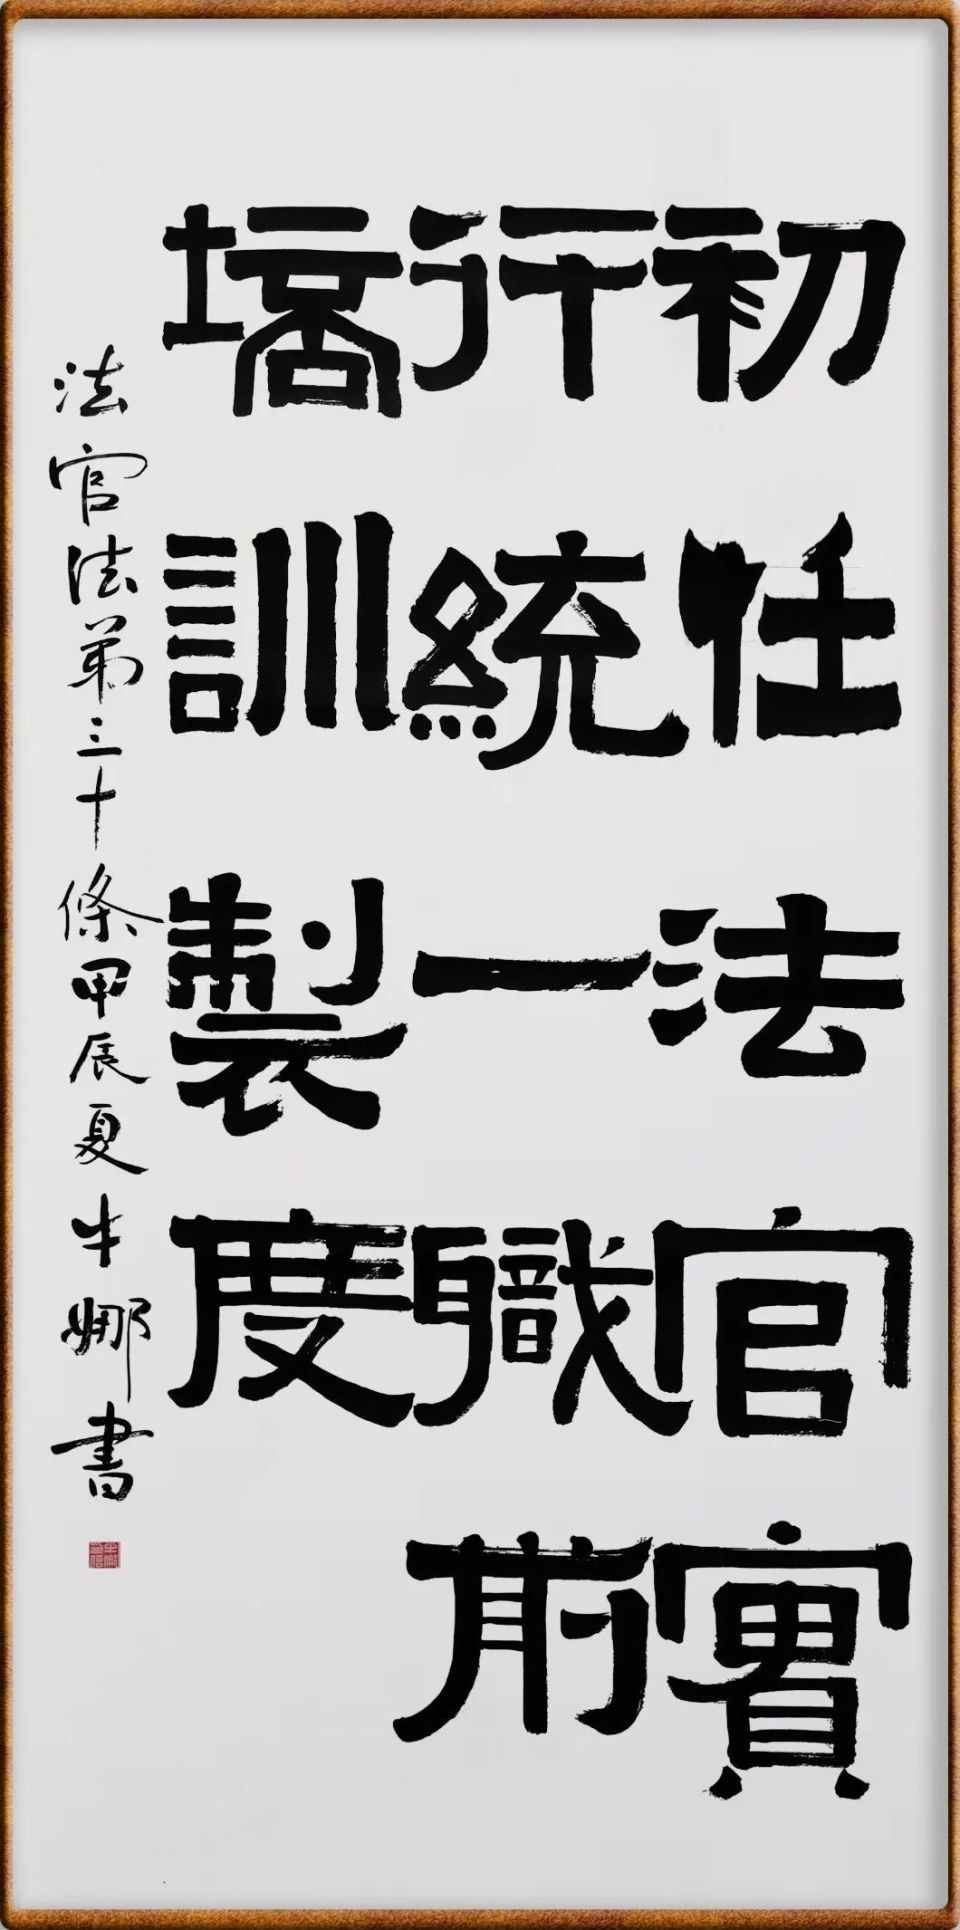 初任法官實
行統一職前
培訓製度
法官法第三十條甲辰夏牛娜書